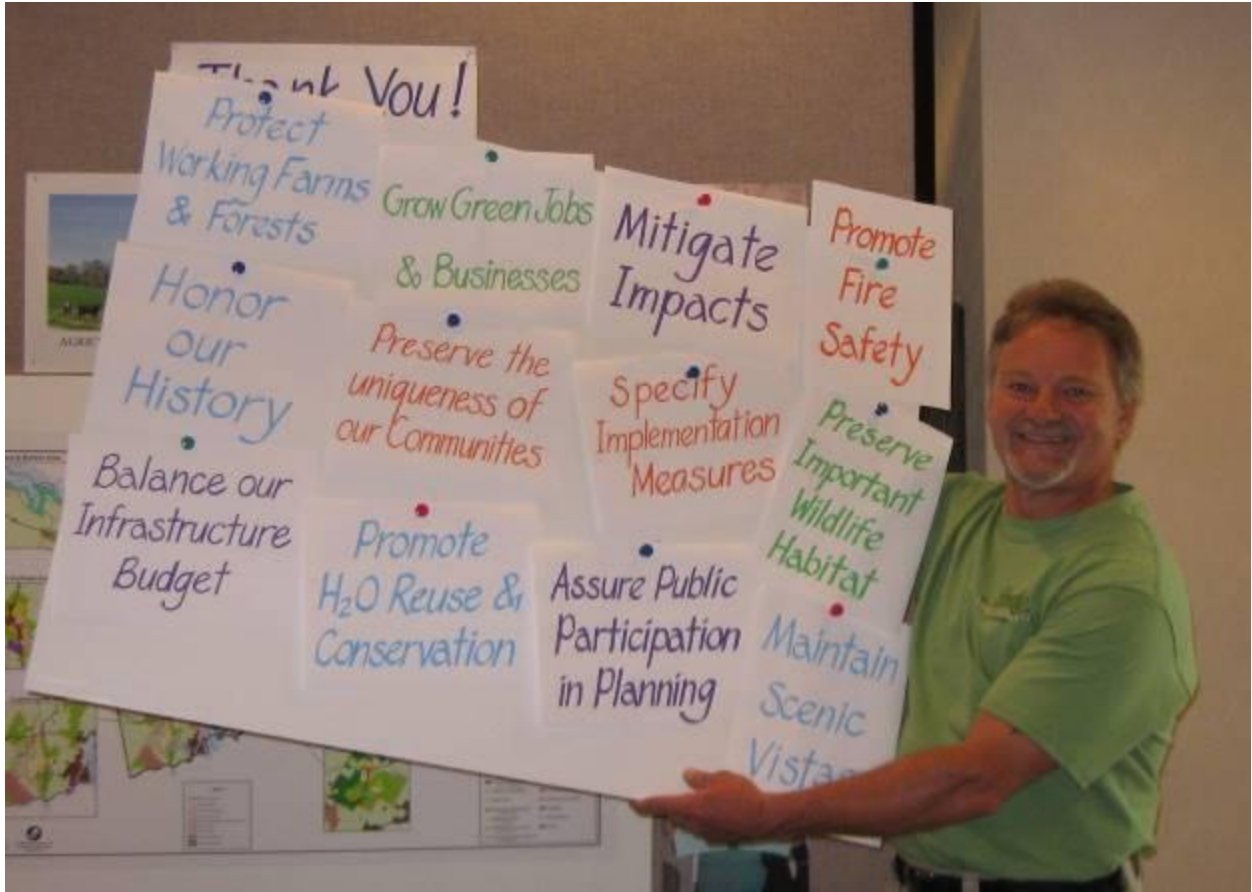 Thank You!
Protect
Working Farms
& Forests
Grow Green Jobs
& Businesses
Mitigate
Impacts
Promote
Fire
Safety
Honor
our
History
Preserve the
uniqueness of
our Communities
Specify
Implementation
Measures
Preserve
Important
Wildlife
Habitat
Balance our
Infrastructure
Budget
Promote
H₂O Reuse &
Conservation
Assure Public
Participation
in Planning
Maintain
Scenic